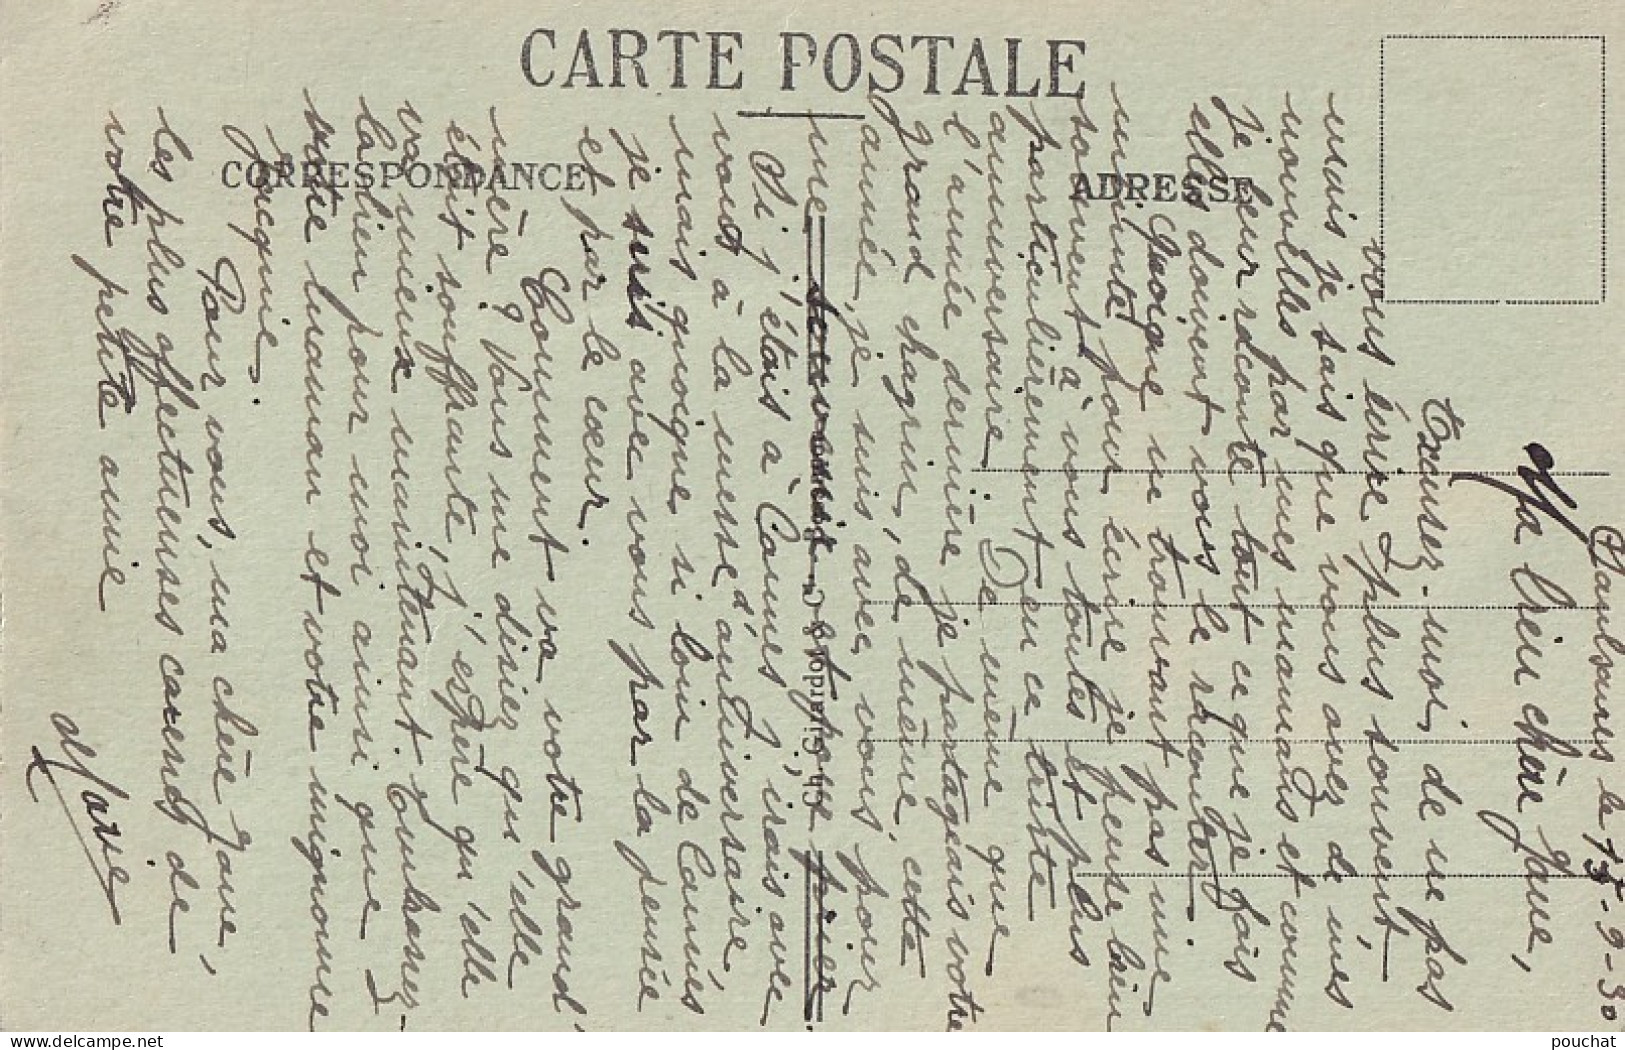 CARTE POSTALE
CORRESPONDANCE
ADRESSE
le 15-9-30
Ma bien chère Jane,
Excusez-moi, de ne pas
vous écrire plus souvent,
mais je sais que vous avez de mes
nouvelles par mes mamans et comme
je leur raconte tout ce que je fais
elles doivent vous le raconter.
Quoique ne trouvant pas une
minute pour écrire je pense bien
souvent à vous toutes et plus
particulièrement en ce triste
anniversaire. De même que
l'année dernière je partageais votre
grand chagrin, de même, cette
année, je suis avec vous, pour
me souvenir et pour prier
Si j'étais à Cannes j'irais avec
vous à la messe d'anniversaire,
mais quoique si loin de Cannes
je suis avec vous par la pensée
et par le cœur.
Comment va votre grand'
mère? Vous me disiez qu'elle
était souffrante, j'espère qu'elle
va mieux maintenant. Embrassez-
la bien pour moi ainsi que
votre maman et votre mignonne
Jacquie.
Pour vous, ma chère Jane,
les plus affectueuses caresses de
votre petite amie
pouchat